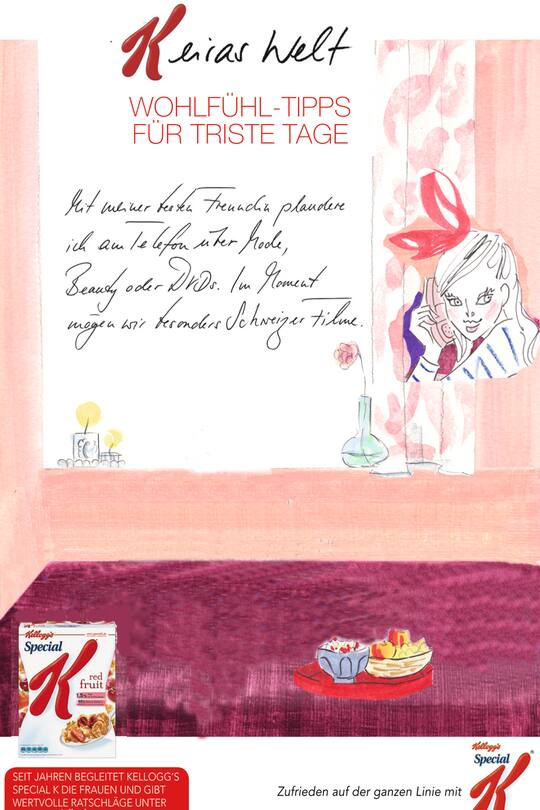 Keiras Welt
WOHLFÜHL-TIPPS
FÜR TRISTE TAGE
Mit meiner besten Freundin plaudere
ich am Telefon über Mode,
Beauty oder DVDs. Im Moment
mögen wir besonders Schweizer Filme.
Kellogg's
Special
K
red
fruit
SEIT JAHREN BEGLEITET KELLOGG'S
SPECIAL K DIE FRAUEN UND GIBT
WERTVOLLE RATSCHLÄGE UNTER
Zufrieden auf der ganzen Linie mit
Kellogg's
Special
K